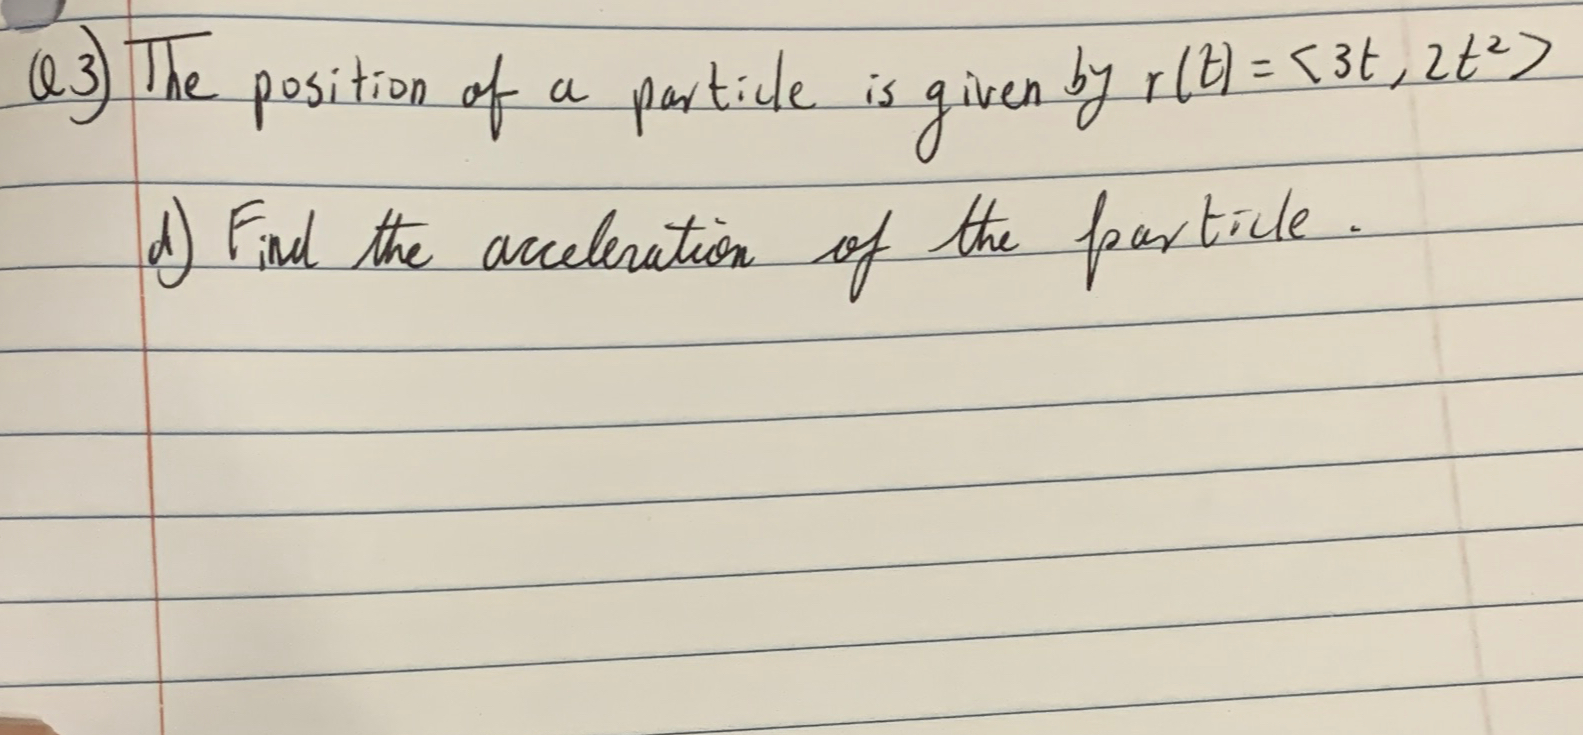 Q3) The position of a particle is given by r(t) = <3t, 2t²>
d) Find the acceleration of the particle.